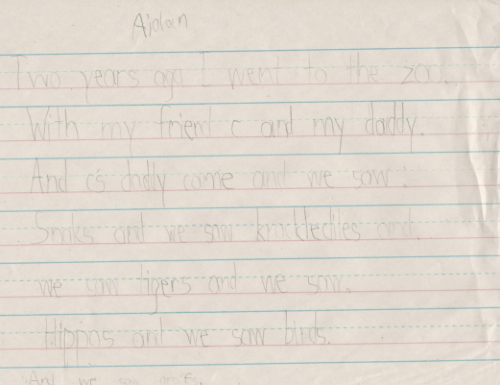 Aidan
Two years ago I went to the zoo.
With my frient c and my daddy.
And c's dadly came and we saw.
Snaks and we saw krockledites and.
we saw tigers and we saw.
Hippos and we saw birds.
And we saw